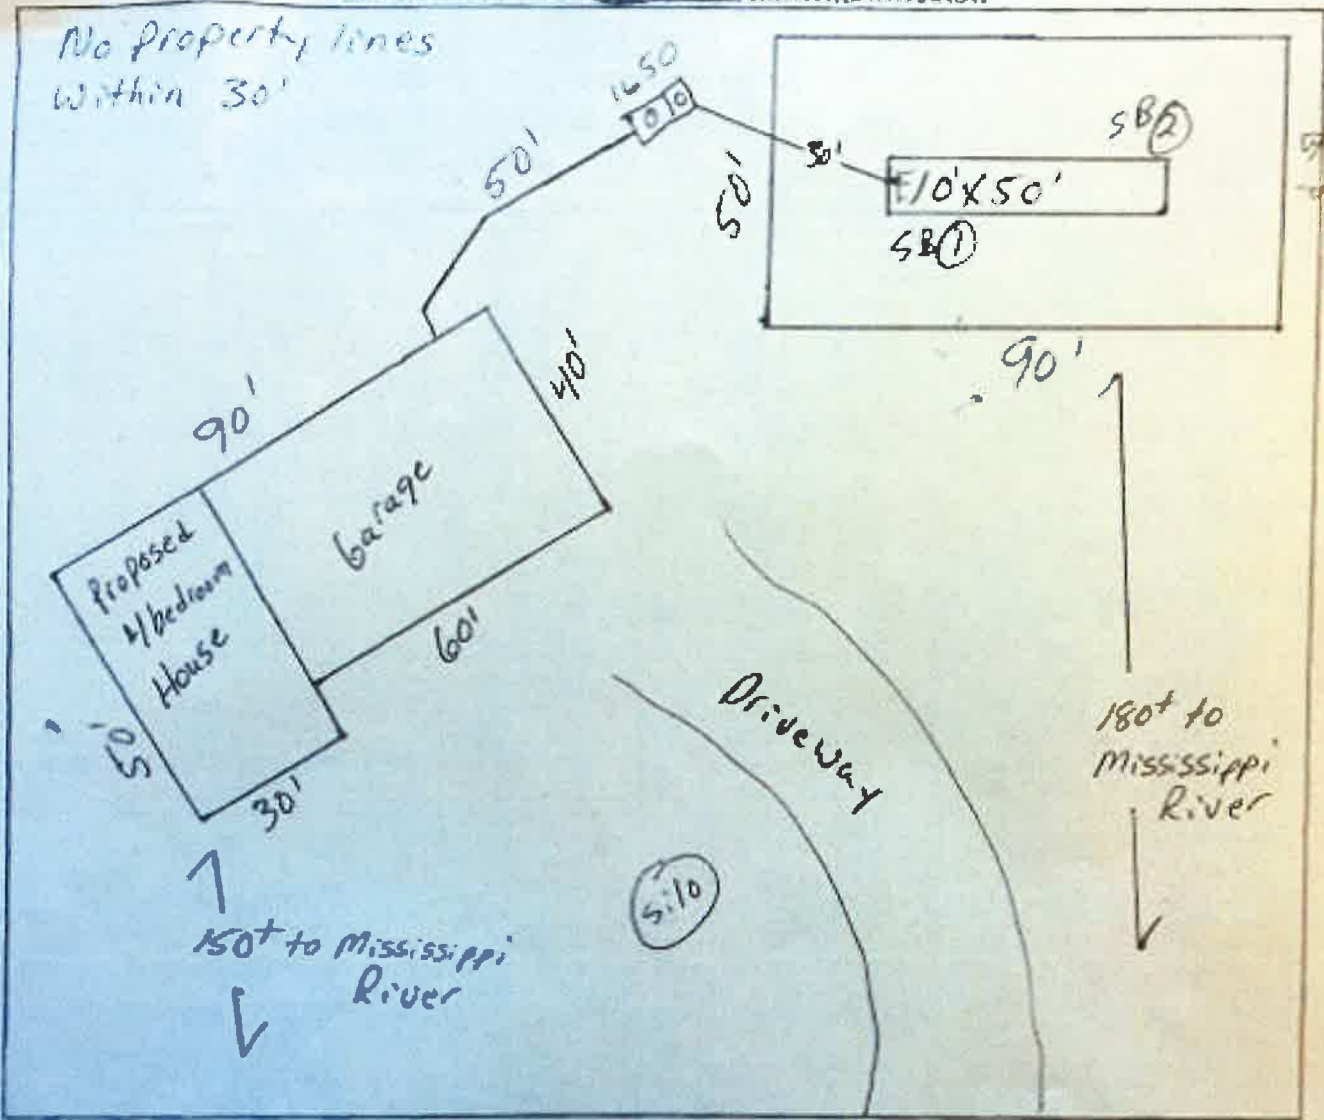 No Property lines
within 30'
1650
50'
30'
50'
SB②
10'X50'
SB①
90'
90'
40'
Garage
60'
Proposed
4/bedroom
House
50'
30'
Driveway
silo
180+ to
Mississippi
River
150+ to Mississippi
River